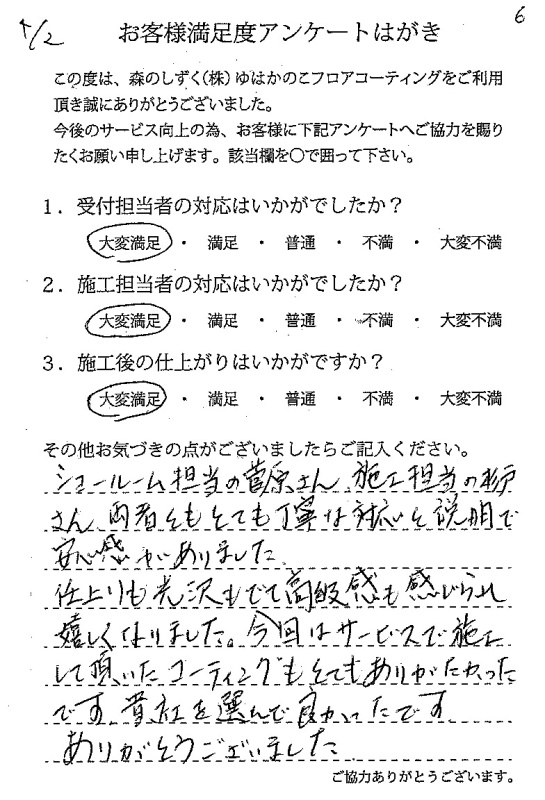 6
お客様満足度アンケートはがき
この度は、森のしずく(株)ゆはかのこフロアコーティングをご利用
頂き誠にありがとうございました。
今後のサービス向上の為、お客様に下記アンケートへご協力を賜り
たくお願い申し上げます。該当欄を〇で囲って下さい。
1．受付担当者の対応はいかがでしたか？
大変満足・満足・普通・不満・大変不満
2．施工担当者の対応はいかがでしたか？
大変満足・満足・普通・不満・大変不満
3．施工後の仕上がりはいかがですか？
大変満足・満足・普通・不満・大変不満
その他お気づきの点がございましたらご記入ください。
ショールーム担当の菅原さん、施工担当の杉戸
さん、両者ともとても丁寧な対応と説明で
安心感がありました
仕上りも光沢もでて高級感も感じられ
嬉しくなりました。今回はサービスで施工
して頂いたコーティングもとてもありがたかった
です 貴社を選んで良かったです
ありがとうございました
ご協力ありがとうございます。